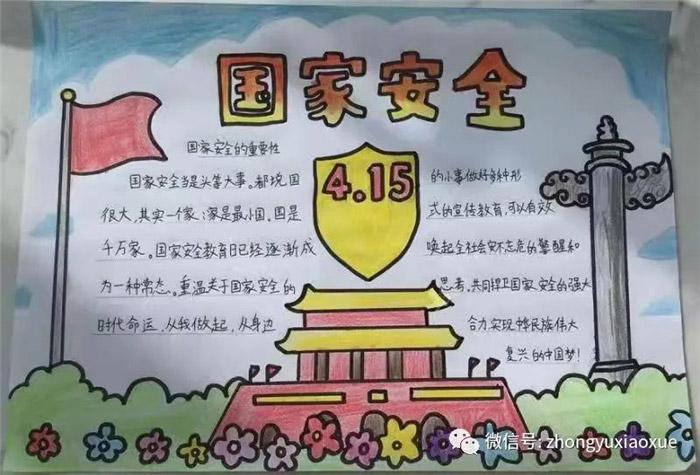 国家安全
4.15
国家安全的重要性
国家安全当是头等大事。都说国
很大,其实一个家;家是最小国。国是
千万家。国家安全教育日已经逐渐成
为一种常态。重温关于国家安全的
时代命运,从我做起,从身边
的小事做好多种形
式的宣传教育,可以有效
唤起全社会安不忘危的警醒和
思考。共同捍卫国家安全的强大
合力,实现民族伟大
复兴的中国梦!
微信号: zhongyuxiaoxue